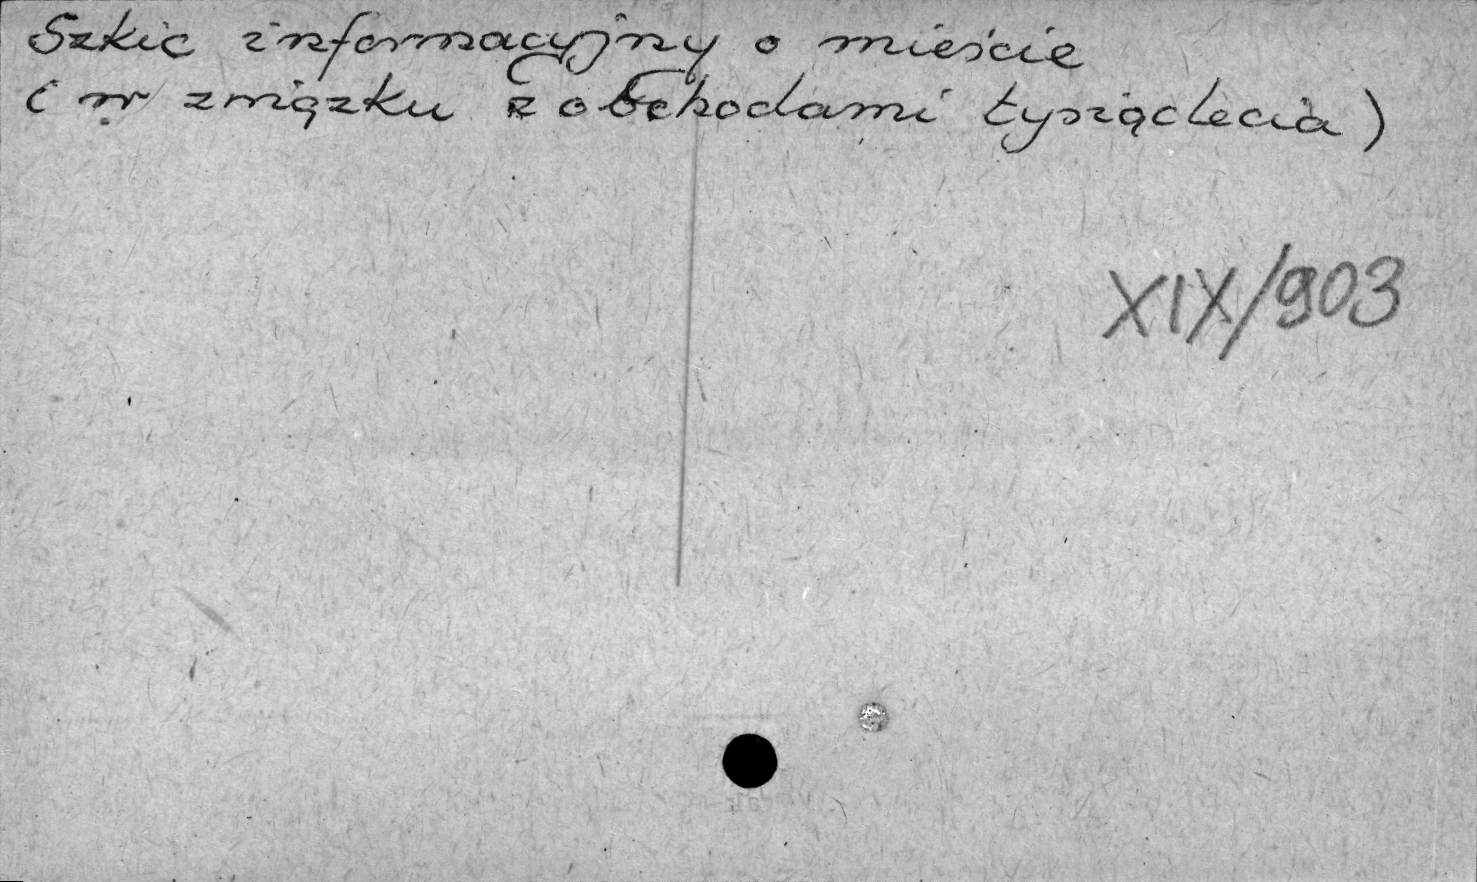 Szkic informacyjny o mieście
( w związku z obchodami tysiąclecia )
XIX/903